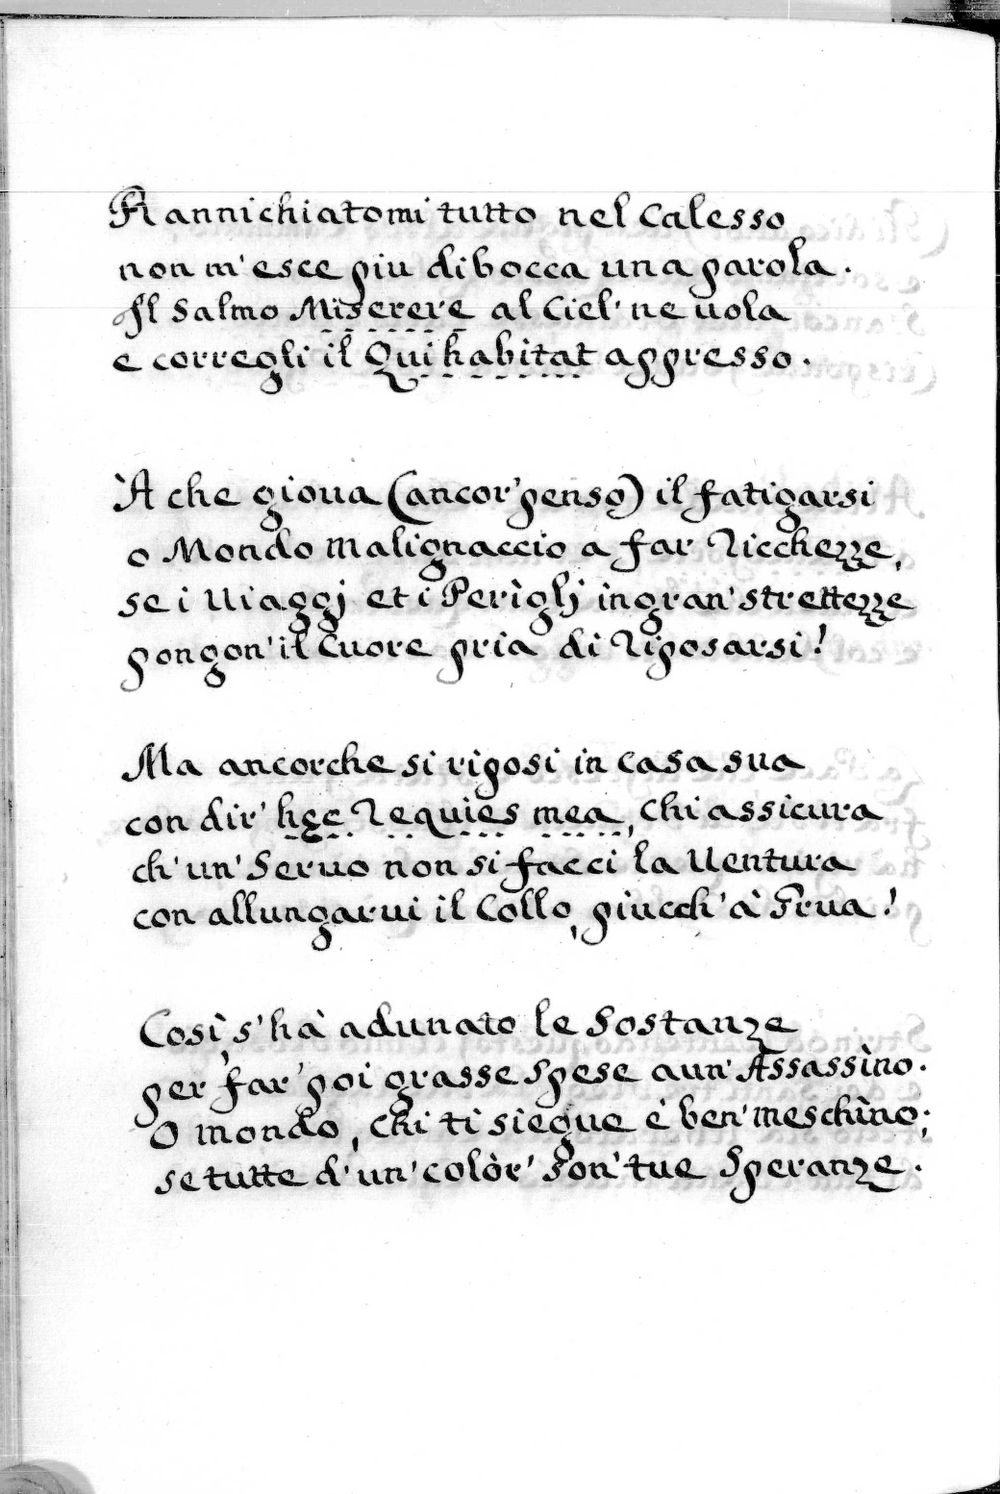 Rannichiatomi tutto nel Calesso
non m'esce piu di bocca una parola.
Il Salmo Miserere al Ciel' ne uola
e corregli il Qui habitat appresso.
À che gioua (ancor' penso) il fatigarsi
o Mondo malignaccio a far Ricchezze,
se i Uiaggj et i Perìglj in gran' strettezze
pongon' il Cuore pria di Riposarsi!
Ma ancorche si riposi in casa sua
con dir' hęc Requies mea, chi assicura
ch' un' Seruo non si facci la Uentura
con allungarui il Collo, piucch' à Grua!
Così s' hà adunato le Sostanze
per far' poi grasse Spese a un' Assassìno.
O mondo, chi ti siegue è ben' meschìno;
se tutte d' un' colòr' son' tue Speranze.